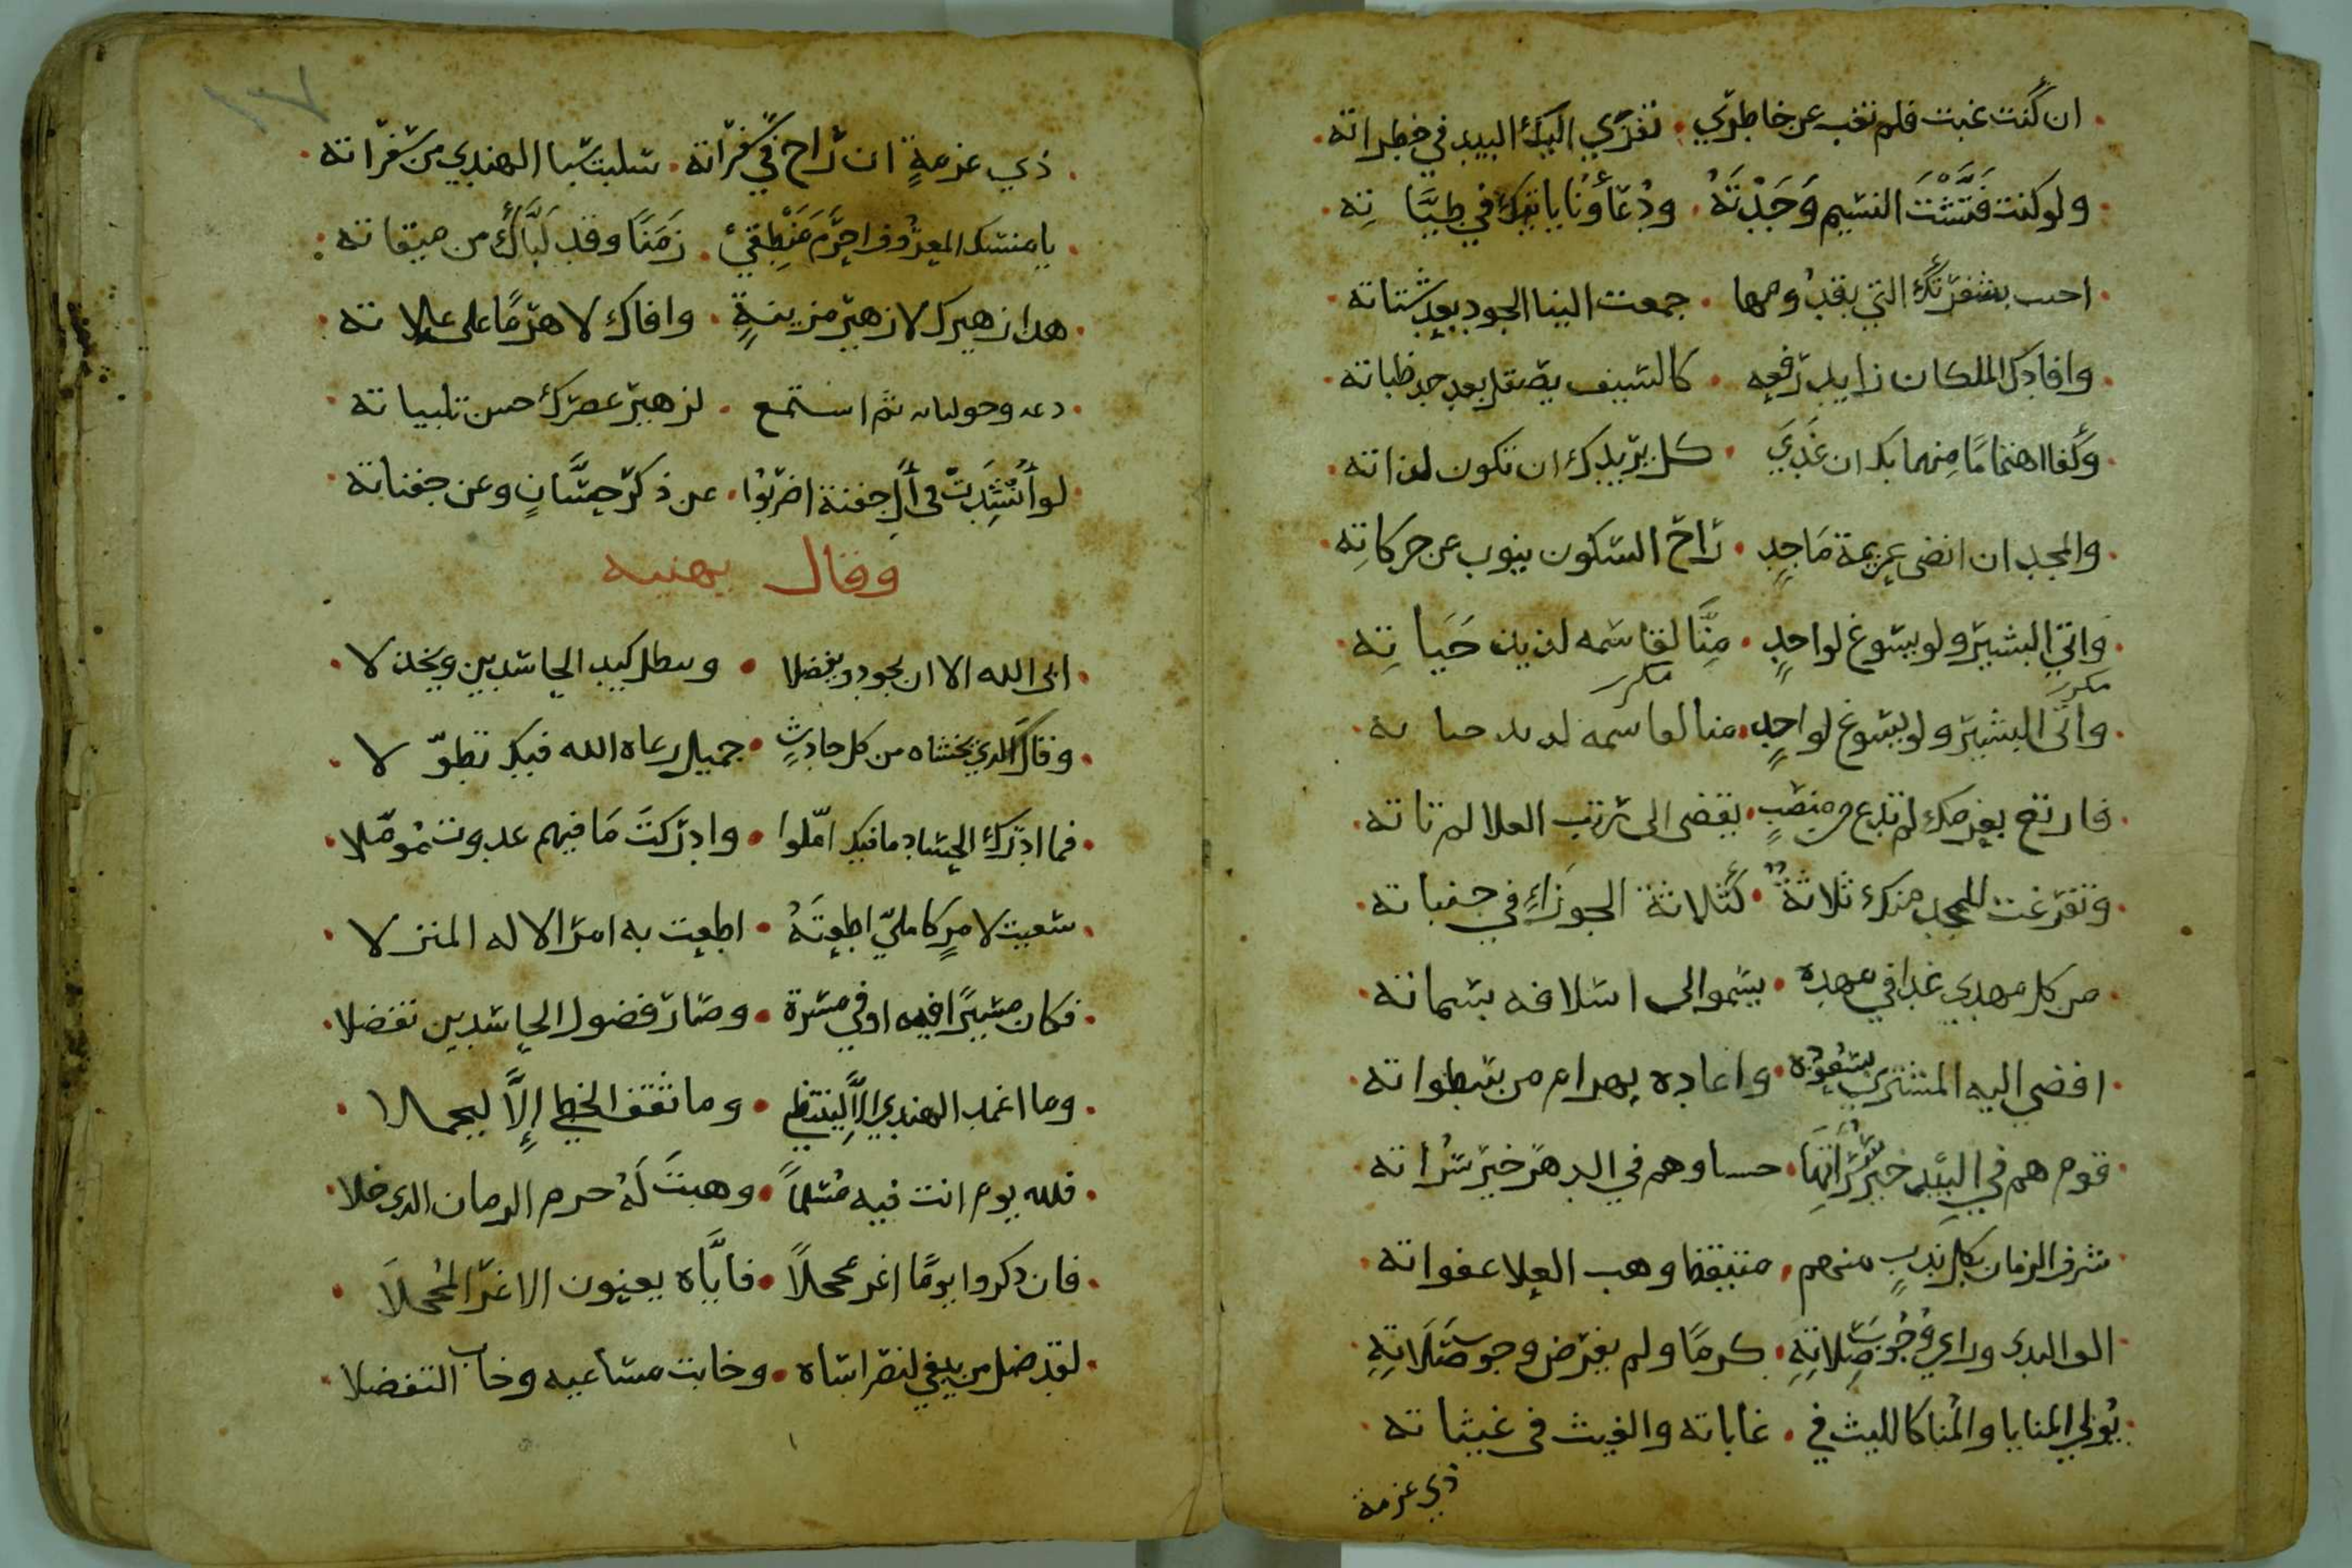 ان كنت غبت فلم تغب عن خاطري . تفري اليك البيد في خطراته
ولو كنت فَتَّشْتَ النسيم وَجَدْتَهُ . ودُعَاؤنُا ياتيك في طيَّاتِه
احبب بسفرتك التي بقدومها . جمعت الينا الجود بعد شتاته
وافادك الملكان زايد رفعه . كالسيف يصقل بعد حد ظباته
وكفا اهتمامًا منهما بك ان غَدَي . كل يريدك ان تكون لذاته
والمجد ان انضى عزيمة مَاجدٍ . راح السكون ينوب عن حركاتِه
واتي البشير ولو يسوغ لواحدٍ . مِنَّا لقاسمه لذيذ حَيَاتِه
مكرر مكرر
واتى البشير ولو يسوغ لواحدٍ . منا لقاسمه لذيذ حياته
فارتع بعزمك لم تدع من منصبٍ . يفضى الى رتب العلا لم تاته
وتفرغت للمجد منك ثلاثةٌ . كثلاثة الجوزاءِ في جنباته
من كل مهدي غدا في مهده . يسموا الى اسلافه بسماته
افضي اليه المشتري بسعوده . واعاده بهرام من سطواته
قوم هم في البيد خير سُرَاتهَا حسبا وهم في الدهر خير سُراته
شرف الزمان بكل ندبٍ منهم . متيقظا وهب العلا عفواته
الف الندى وراي وُجُوبَ صِلاتِهِ . كرمًا ولم يفرض وجوب صَلَاتِهِ
يُولي المنايا والمُنا كالليث في . غاباته والغيث فى غيثاته
ذي عزمة
١٢٧
ذي عزمةٍ ان راح في سَفَراته . سلبت شبا الهندي من سفراته
يا منسك المعرُوف احرَم مَنْطِقي . زَمَنًا وقد لَبَّاك من ميقاته
هذا زهيرك لا زهير مزينةٍ . وافاك لا هرمًا على علاته
دعه وحولياته ثم استمع . لزهير عصرك حسن تلبياته
لو أُنْشِدَتْ في آل جفنة اضربُوا . عن ذكر حسَّانٍ وعن جفناته
وقال يهنيه
ابى الله الا ان تجود وتفضلا . وسطل كيد الحاسدين ويخذلا
وقاكَ الذي تخشاه من كل حادثٍ . جميل رعاه الله فيك تطوّلا
فما ادرك الحساد ما فيك امّلوا . وادركتَ مَا فيهم غدوت مُومّلا
سعيت لامرٍ كامليٍّ اطعتَهُ . اطعت به امر الاله المنزلا
فكان مسيرًا فيه اوفي مسرة . وصار فضول الحاسدين تفضلا
وما اغمد الهندي إلاَّ لينتضي . وما ثقف الخطي إلاَّ ليحملا
فلله يوم انت فيه مُسَلماً . وهبتَ لَهُ جرم الزمان الذي خلا
فان ذكروا يومًا اغر محجلاً . فايَّاه يعنيون الاغرّ المُحجلاَ
لقد ضل من يبغي لنصر اساه . وخابت مساعيه وخاب التفضلا